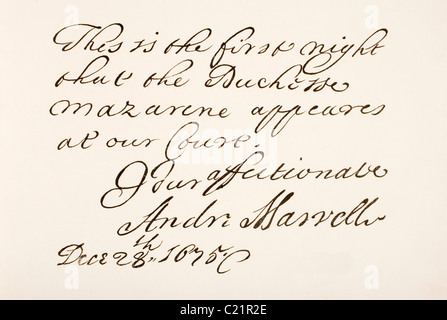 This is the first night
that the Duchesse
Mazarine appeares
at our Court.
Your affectionate
Andr: Marvell
Dece 28th, 1675.
alamy
Image ID: C21R2E
www.alamy.com